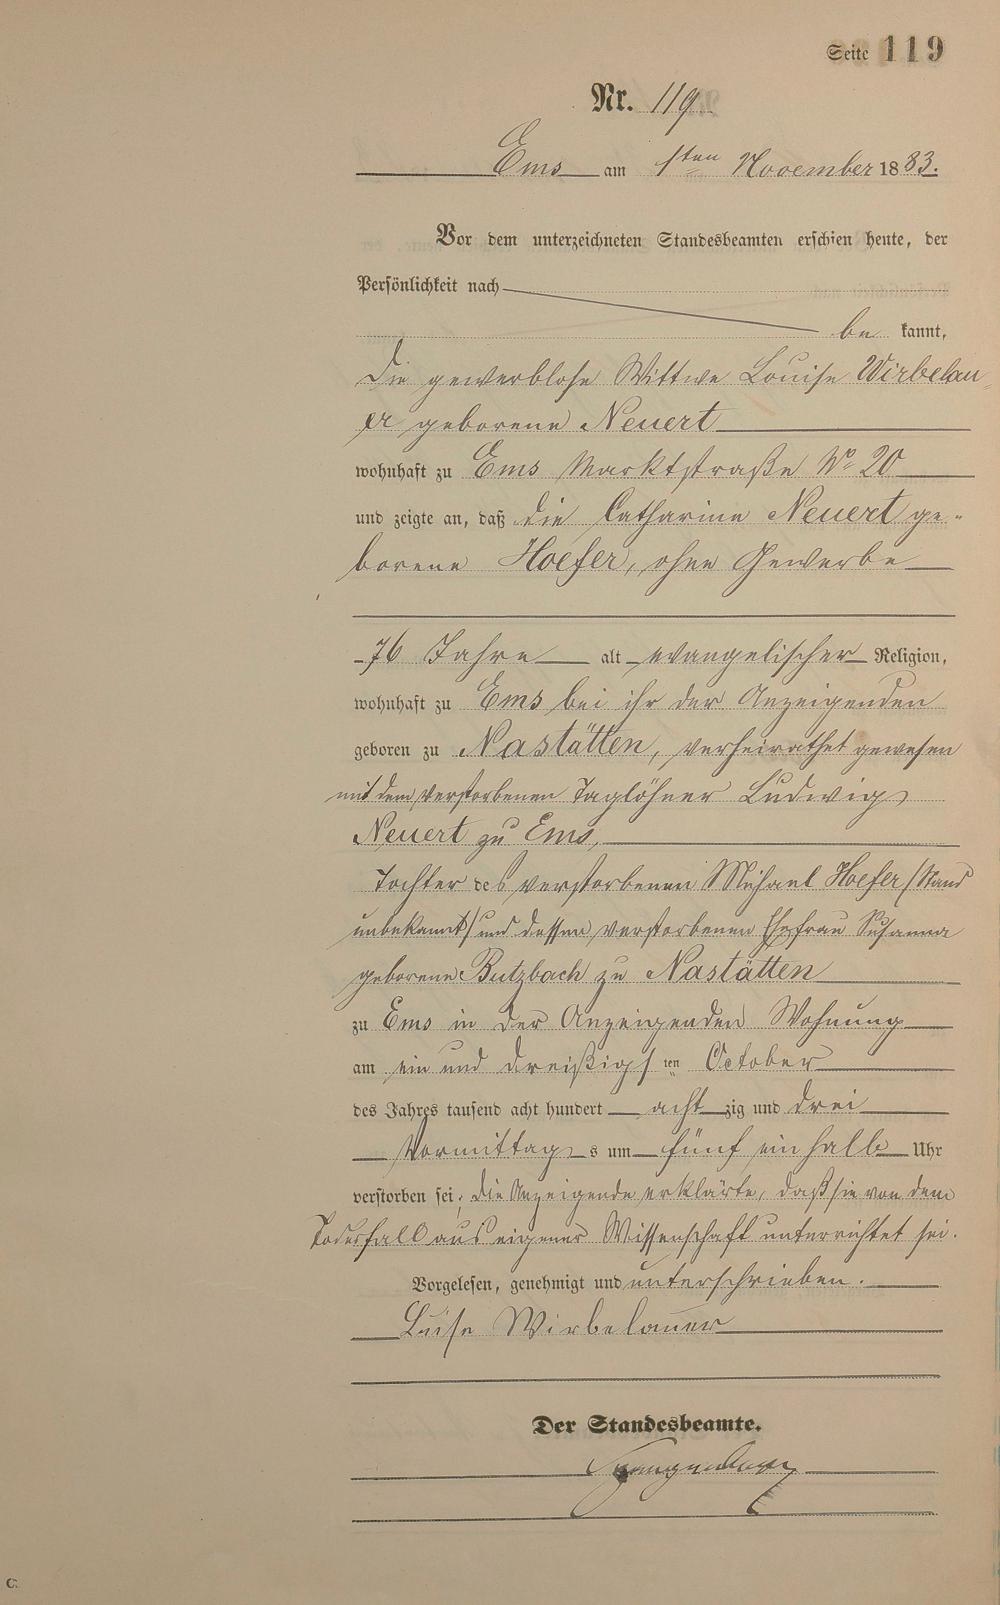 Seite 119
Nr. 119
Ems am 1ten November 1883.
Vor dem unterzeichneten Standesbeamten erschien heute, der
Persönlichkeit nach
be kannt,
die gewerblose Wittwe Louise Wirbelau-
er geborene Neuert
wohnhaft zu Ems Marktstraße No 20
und zeigte an, daß die Catharina Neuert ge-
borene Hoefer, ohne Gewerbe
76 Jahre alt evangelischer Religion,
wohnhaft zu Ems bei ihr der Anzeigenden
geboren zu Nastätten, verheirathet gewesen
mit dem verstorbenen Taglöhner Ludwig
Neuert zu Ems,
Tochter des verstorbenen Michael Hoefer (Stand
unbekannt) und dessen verstorbenen Ehefrau Susanna
geborene Butzbach zu Nastätten
zu Ems in der Anzeigenden Wohnung
am ein und dreißigsten October
des Jahres tausend acht hundert achtzig und drei
Vormittags um fünf ein halb Uhr
verstorben sei; die Anzeigende erklärte, daß sie von dem
Todesfall aus eigener Wissenschaft unterrichtet sei.
Vorgelesen, genehmigt und unterschrieben.
Luise Wirbelauer
Der Standesbeamte.
C.